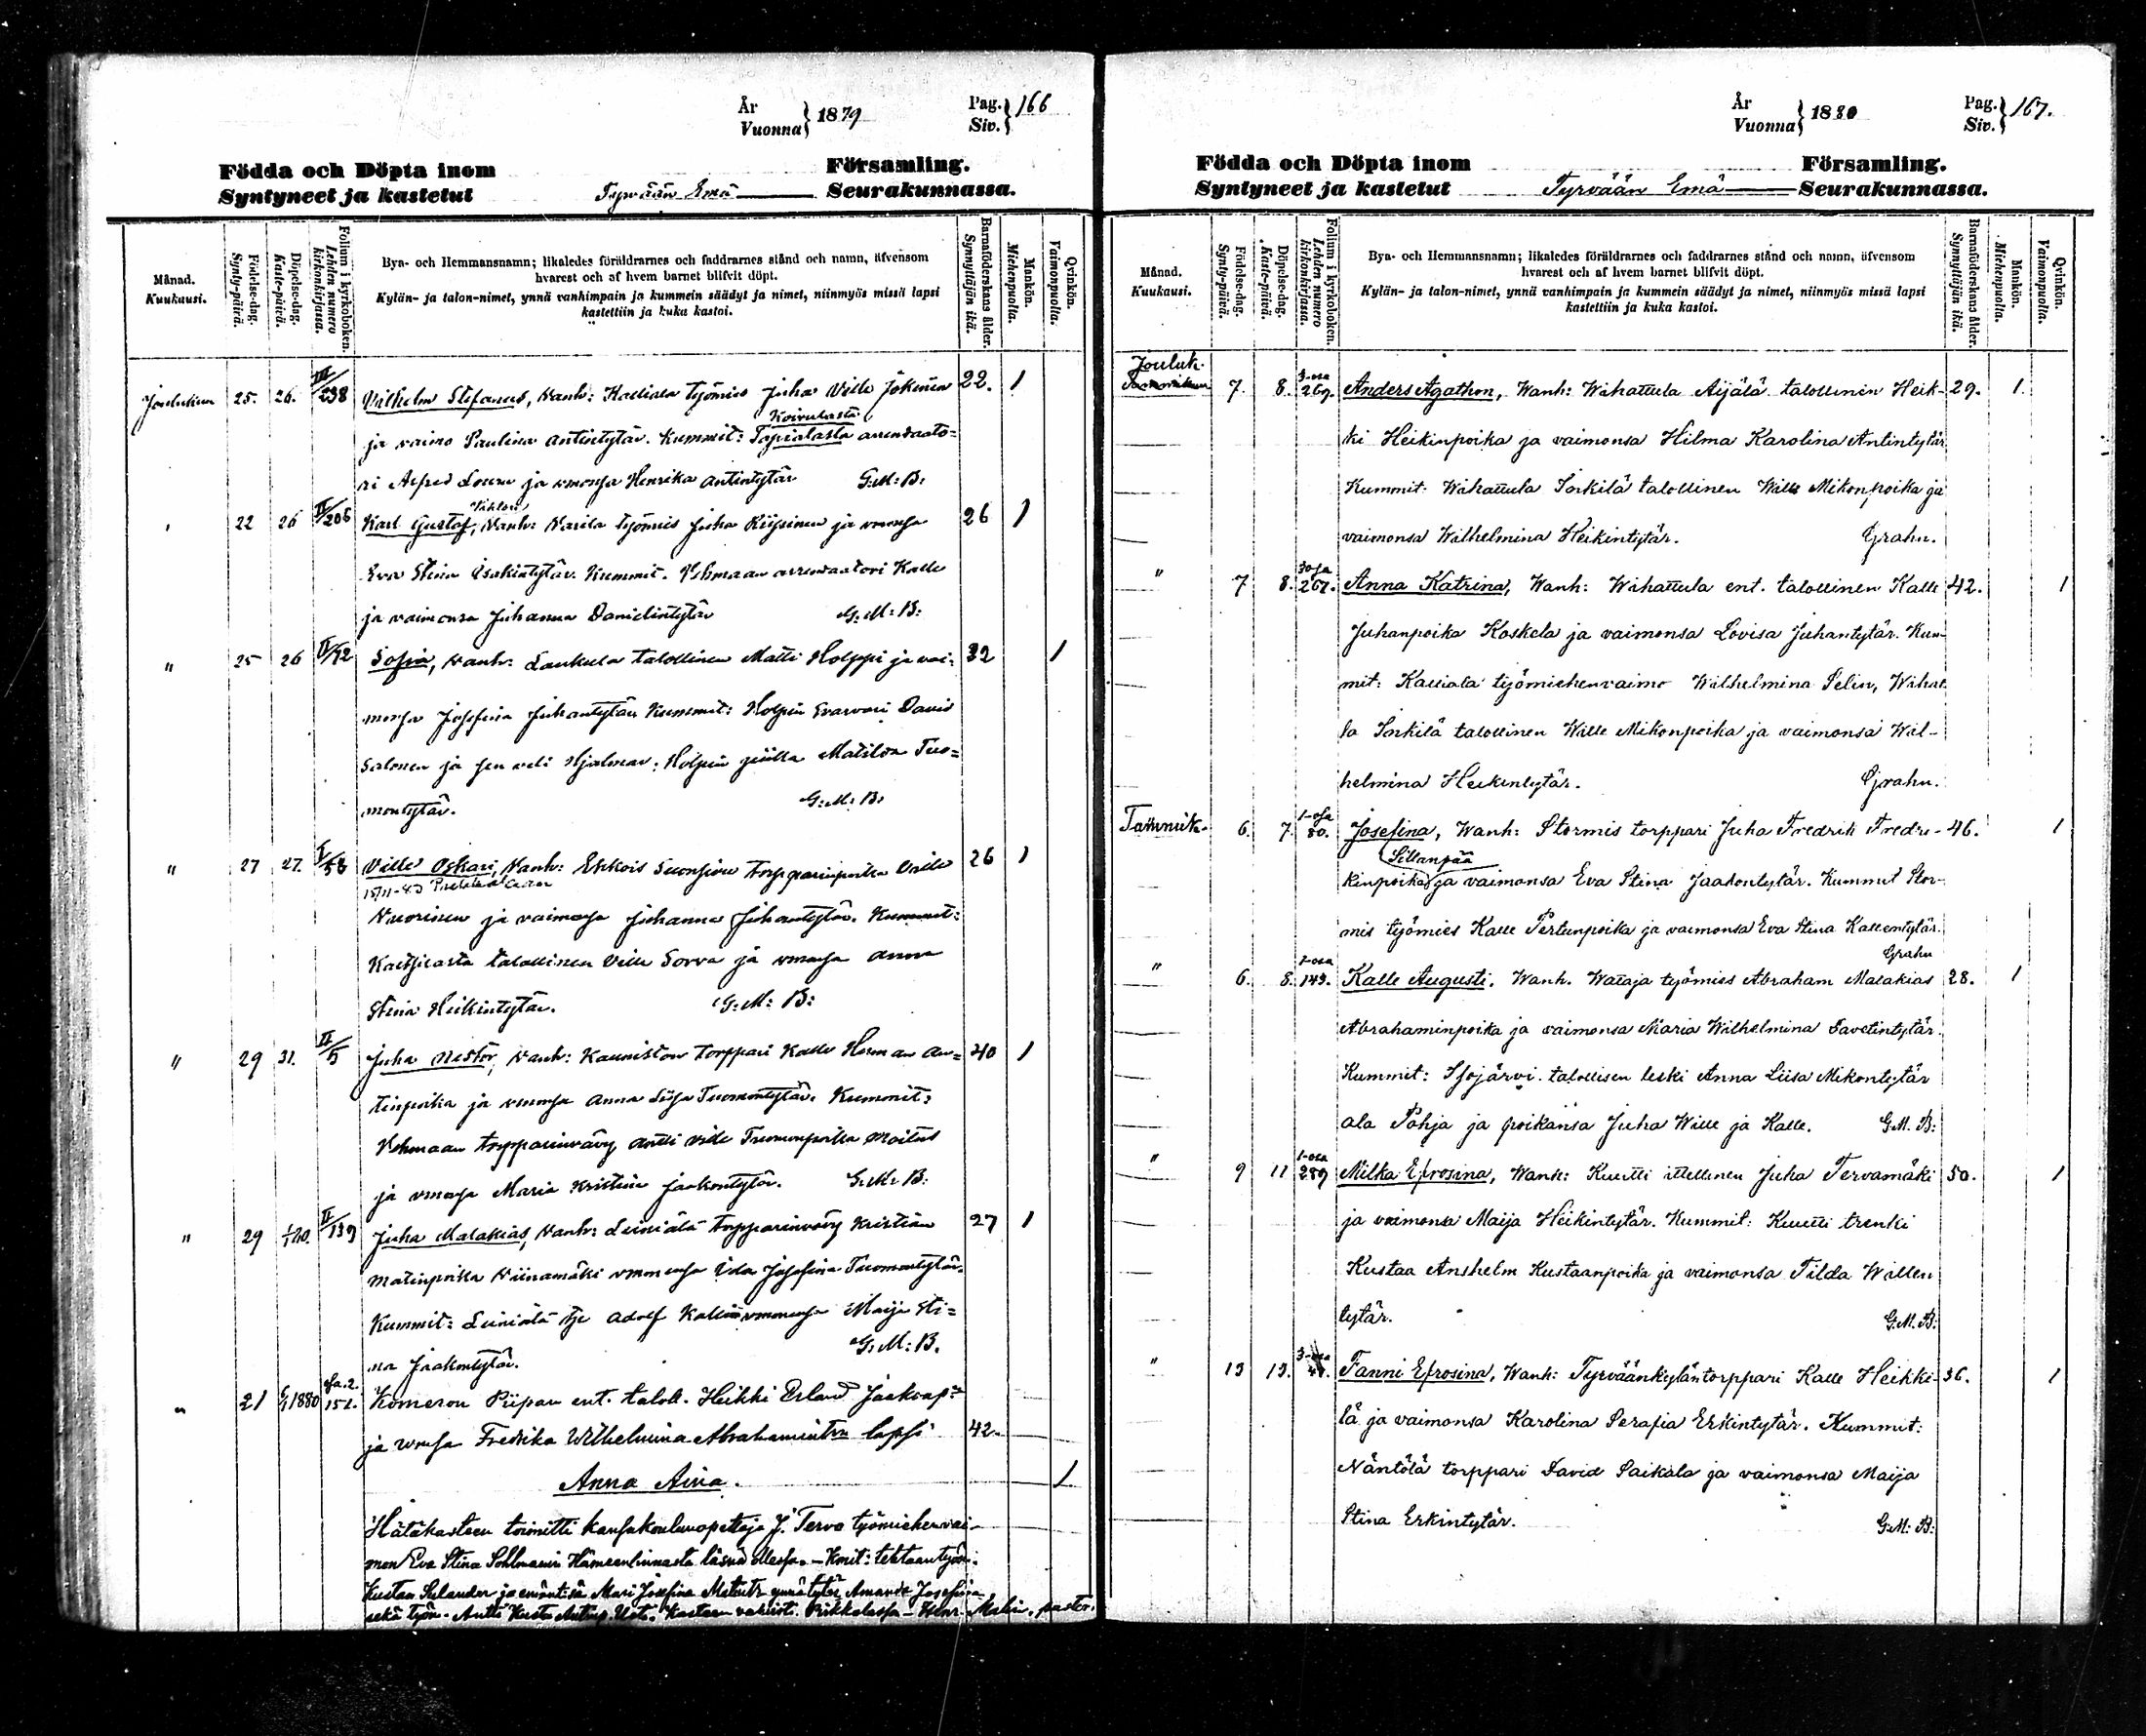 År
Vuonna } 1879
Pag.
Siv. } 166
Födda och Döpta inom Församling.
Syntyneet ja kastetut Tyrvään Emä Seurakunnassa.
Månad.
Kuukausi.
Födelse-dag.
Synty-päivä.
Döpelse-dag.
Kaste-päivä.
Folium i kyrkoboken.
Lehden numero
kirkonkirjassa.
Bya- och Hemmansnamn; likaledes föräldrarnes och faddrarnes stånd och namn, äfvensom
hvarest och af hvem barnet blifvit döpt.
Kylän- ja talon-nimet, ynnä vanhimpain ja kummein säädyt ja nimet, niinmyös missä lapsi
kastettiin ja kuka kastoi.
Barnaföderskans ålder.
Synnyttäjän ikä.
Mankön.
Miehenpuolta.
Qvinkön.
Vaimonpuolta.
Joulukuu 25. 26. III/238 Vilhelm Stefanus, Vanh: Kalliala työmies Juha Ville Jokinen 22. 1
Koivulasta
ja vaimo Paulina Antintytär. Kummit: Tapialasta arrendaato=
ri Alfred ja vmonsa Henrika Antintytär G:M:B:
22 26 II/206 Karl Gustaf, Vanh: työmies Juha ja vmonsa 26 1
Eva Stina Isakintytär. Kummit. Vehmaan arrendaatori Kalle
ja vaimonsa Juhanna Danielintytär G:M:B:
" 25 26 II/72 Sofia, Vanh: Laukula talollinen Matti Holppi ja vai= 32 1
monsa Josefina Juhantytär Kummit: Holpin David
Salonen ja sen veli Hjalmar; Holpin piika Matilda Tuo=
montytär. G:M:B:
" 27 27. I/58 Ville Oskari, Vanh: torpparinpoika Ville 26 1
Nuorinen ja vaimonsa Johanna Juhantytär. Kummit:
talollinen Ville Sorva ja vmonsa Anna
Stina Heikintytär. G:M:B:
" 29 31. II/5 Juha Nestor, Vanh: Kauniston Torppari Kalle Herman An= 40 1
tinpoika ja vmonsa Anna Liisa Tuomontytär. Kummit:
Vehmaan torpparinvävy Antti Ville Tuomonpoika
ja vmonsa Maria Kristina Jaakontytär. G:M:B:
" 29 1/1 80. II/139 Juha Malakias, Vanh: Leiniälä torpparinvävy Kristian 27 1
Matinpoika Viinamäki vmonensa Ida Josefina Tuomontytär.
Kummit: Leiniälä Adolf vmonensa Maija Sti=
na Jaakontytär. G:M:B.
" 21 1880 osa.2. 151. Komeron Piipan ent. taloll. Heikki Erland Jaakonp:
ja vmonsa Fredrika Wilhelmina Abrahamintr. lapsi 42.
Anna Aina. 1
Hätäkasteen toimitti kansakoulunopettaja J. Tervo työmiehen vai-
mon Eva Stina Sohlmanin Hämeenlinnasta läsnä ollessa. – Kmit: tehtaantyöm:
Kustaa Selander ja emäntänsä Mari Josefina ynnä tytär Amanda Josefina
sekä työm. Antti Kasteen vahvist.
År
Vuonna } 1880
Pag.
Siv. } 167.
Födda och Döpta inom Församling.
Syntyneet ja kastetut Tyrvään Emä Seurakunnassa.
Månad.
Kuukausi.
Födelse-dag.
Synty-päivä.
Döpelse-dag.
Kaste-päivä.
Folium i kyrkoboken.
Lehden numero
kirkonkirjassa.
Bya- och Hemmansnamn; likaledes föräldrarnes och faddrarnes stånd och namn, äfvensom
hvarest och af hvem barnet blifvit döpt.
Kylän- ja talon-nimet, ynnä vanhimpain ja kummein säädyt ja nimet, niinmyös missä lapsi
kastettiin ja kuka kastoi.
Barnaföderskans ålder.
Synnyttäjän ikä.
Mankön.
Miehenpuolta.
Qvinkön.
Vaimonpuolta.
Jouluk.
7. 8. 3-osa 269. Anders Agathon, Wanh: Wihattula Äijälä talollinen Heik- 29. 1.
ki Heikinpoika ja vaimonsa Hilma Karolina Antintytär
Kummit: Wihattula Sorkilä talollinen Wille Mikonpoika ja
vaimonsa Wilhelmina Heikintytär. Grahn.
" 7 8. 3osa 267. Anna Katrina, Wanh: Wihattula ent. talollinen Kalle 42. 1
Juhanpoika Koskela ja vaimonsa Lovisa Juhantytär. Kum-
mit: Kalliala työmiehenvaimo Wilhelmina Selin, Wihat
la Sorkilä talollinen Wille Mikonpoika ja vaimonsa Wil-
helmina Heikintytär. Grahn.
Tammik. 6. 7. 1-osa 80. Josefina, Wanh: Stormis torppari Juha Fredrik Fredri- 46. 1
Sillanpää
kinpoika ja vaimonsa Eva Stina Jaakontytär. Kummit Stor-
mis työmies Kalle Pertunpoika ja vaimonsa Eva Stina Kallentytär.
Grahn
" 6. 8. 1-osa 143. Kalle Augusti, Wanh. Wataja työmies Abraham Malakias 28. 1
Abrahaminpoika ja vaimonsa Maria Wilhelmina Tavetintytär.
Kummit: talollisen leski Anna Liisa Mikontytär
ala Pohja ja poikansa Juha Wille ja Kalle. G.M.B:
" 9 11 1-osa 289 Milka Efrosina, Wanh: Kuutti itsellinen Juha Tervamäki 50. 1
ja vaimonsa Maija Heikintytär. Kummit: Kuutti trenki
Kustaa Anshelm Kustaanpoika ja vaimonsa Tilda Willen
tytär. G.M.B:
" 13 13. 3-osa Fanni Efrosina, Wanh: Tyrväänkylän torppari Kalle Heikki- 36. 1
lä ja vaimonsa Karolina Serafia Erkintytär. Kummit:
Näntölä torppari David Saikala ja vaimonsa Maija
Stina Erkintytär. G.M:B: